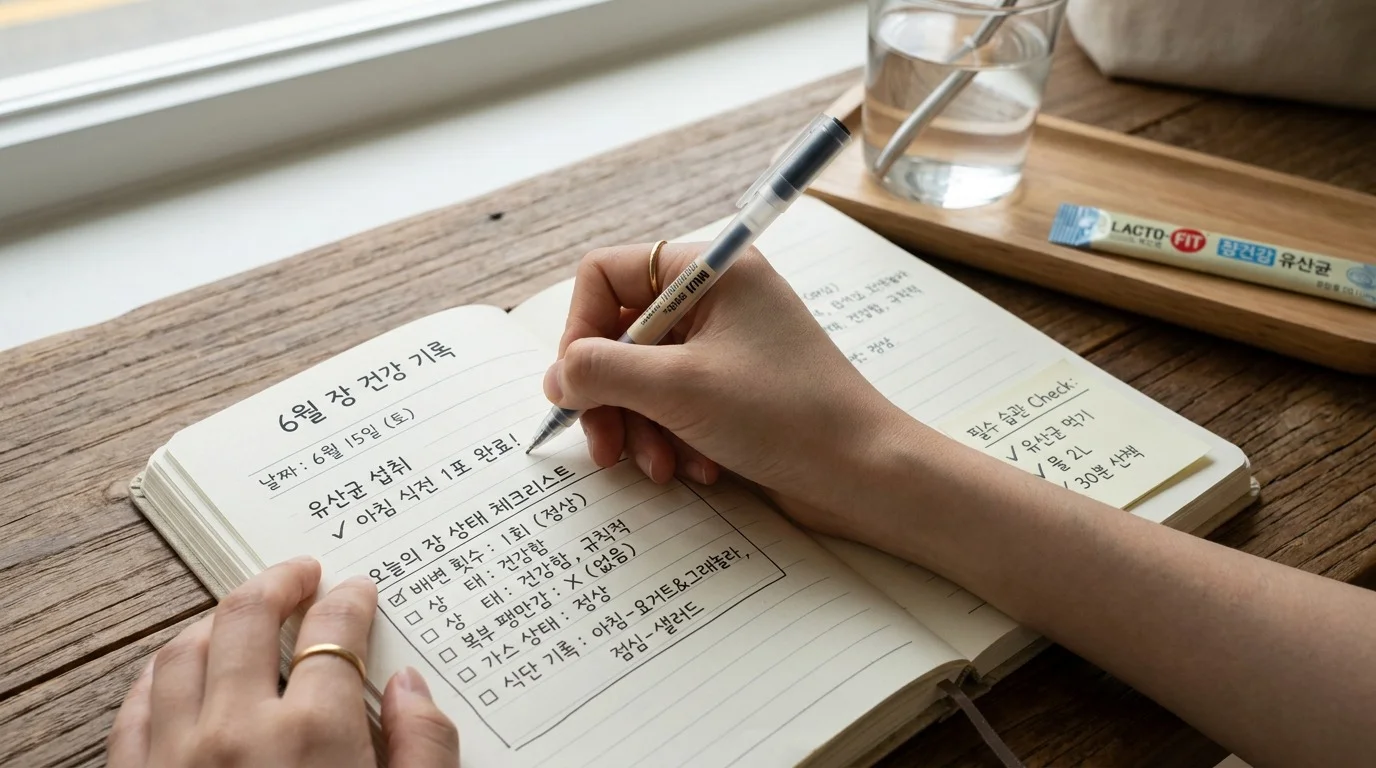 6월 장 건강 기록
날짜 : 6월 15일 (토)
유산균 섭취
✓ 아침 식전 1포 완료!
오늘의 장 상태 체크리스트
☑ 배변 횟수 : 1회 (정상)
☐ 상 태 : 건강함
☐ 상 태 : 건강함, 규칙적
☐ 복부 팽만감 : X (없음)
☐ 가스 상태 : 정상
☐ 식단 기록 : 아침-요거트&그래놀라,
점심-샐러드
정상
필수 습관 Check:
✓ 유산균 먹기
✓ 물 2L
✓ 30분 산책
MUJI
LACTO-FIT
유산균